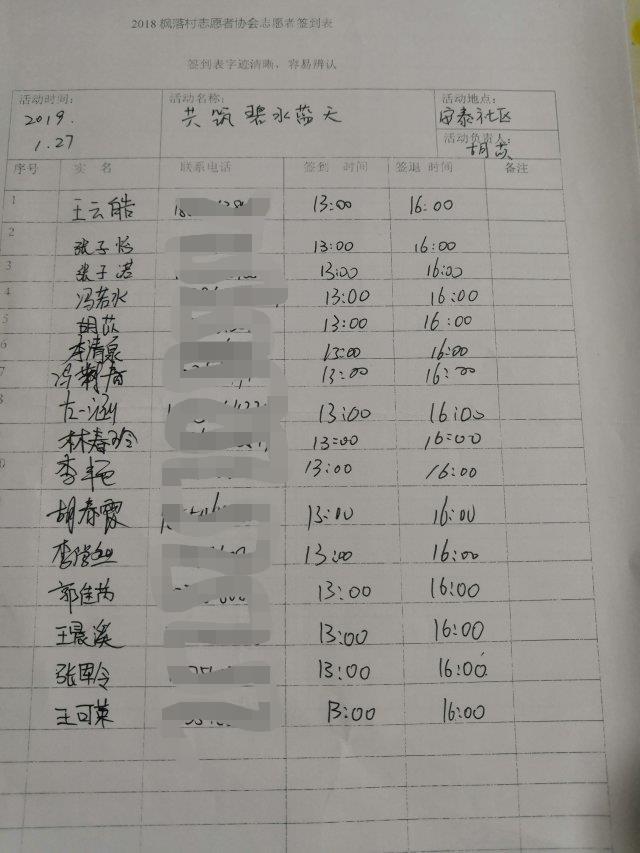 2018枫落村志愿者协会志愿者签到表
签到表字迹清晰，容易辨认
活动时间： 活动名称： 活动地点：
2019. 共筑碧水蓝天 安泰社区
1.27 活动负责人：
胡苡
序号 实 名 联系电话 签到 时间 签退 时间 备注
1 王云皓 13:00 16:00
2 张子怡 13:00 16:00
3 张子诺 13:00 16:00
4 冯若水 13:00 16:00
5 胡苡 13:00 16:00
6 李清泉 13:00 16:00
7 13:00 16:00
左一涵 13:00 16:00
林春玲 13:00 16:00
李艳 13:00 16:00
胡春霞 13:00 16:00
13:00 16:00
郭佳芮 13:00 16:00
王晨溪 13:00 16:00
13:00 16:00
王可英 13:00 16:00